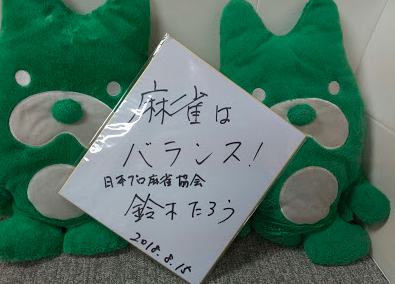 麻雀は
バランス!
日本プロ麻雀協会
鈴木たろう
2018.8.15